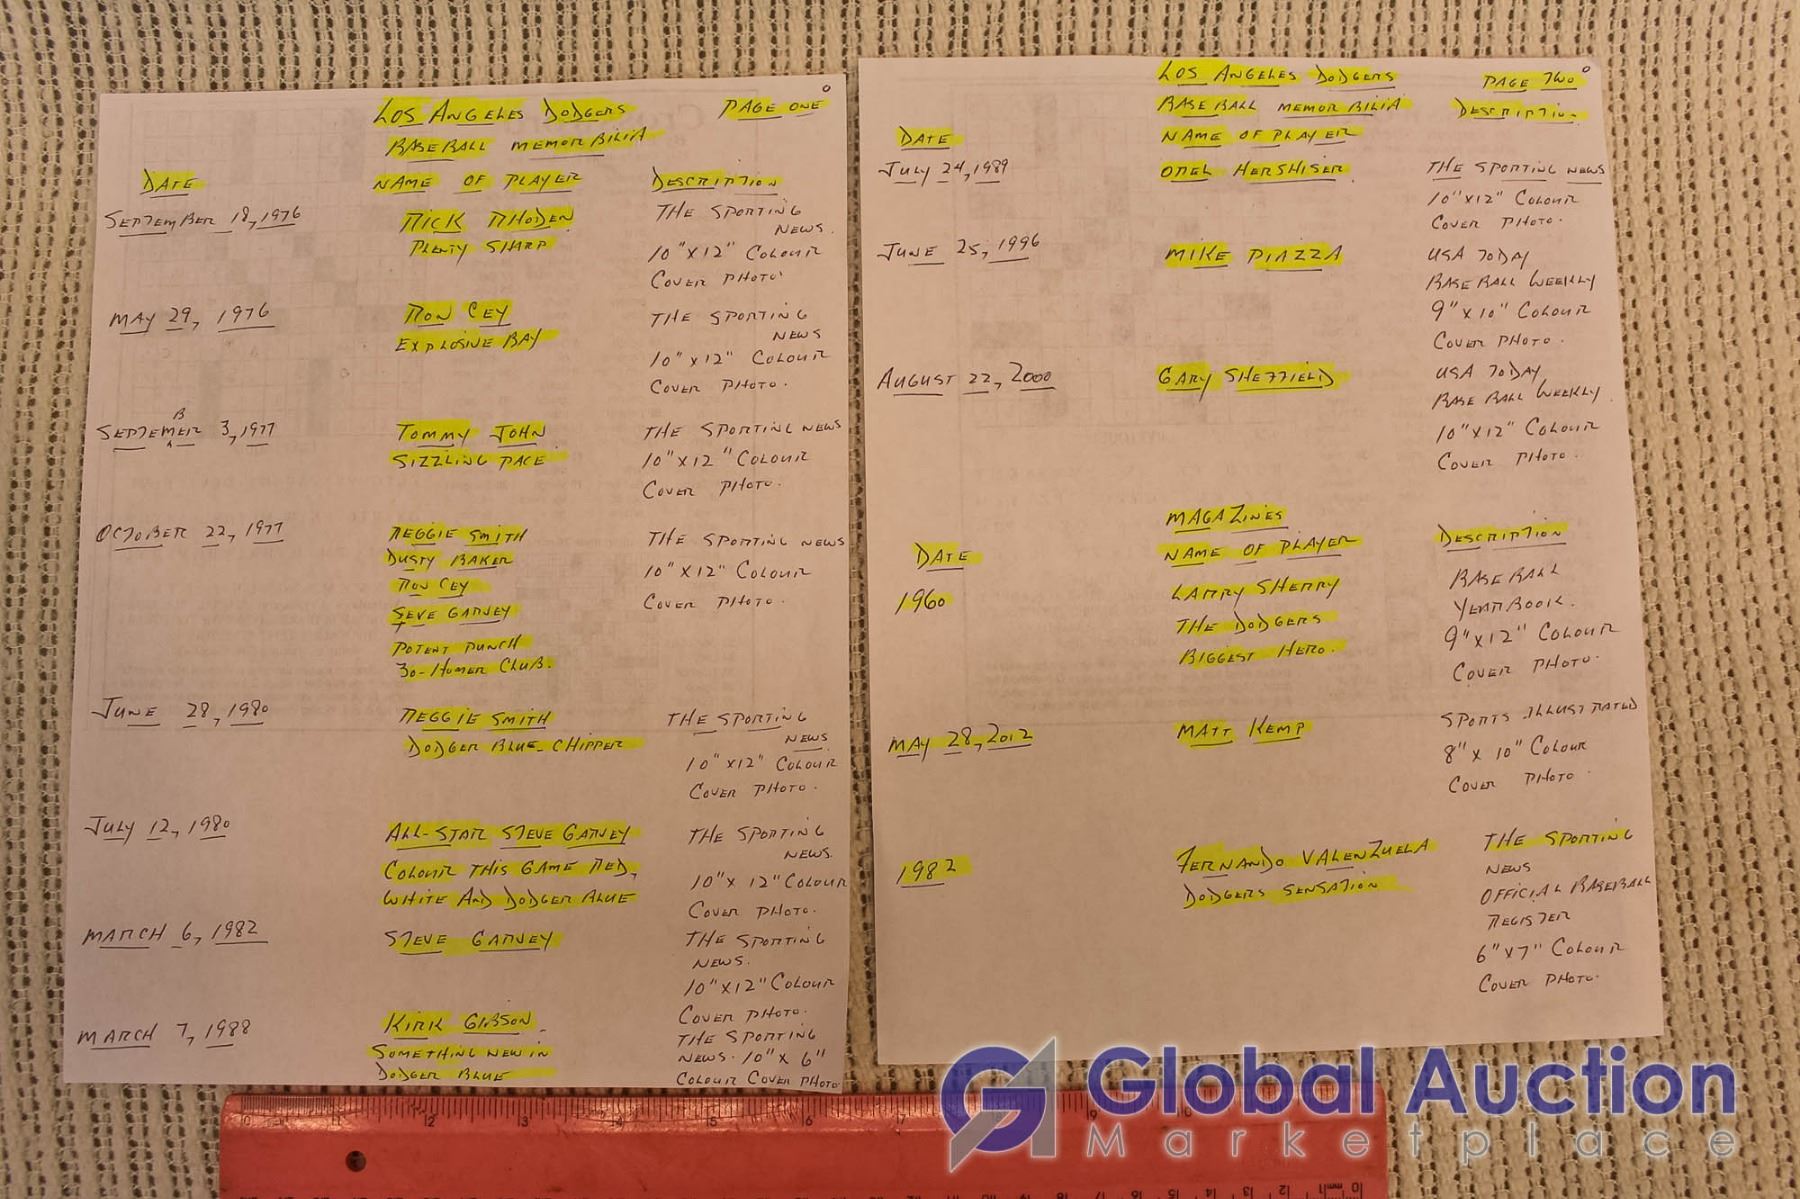 LOS ANGELES DODGERS PAGE ONE
BASEBALL MEMORBILIA
DATE NAME OF PLAYER DESCRIPTION
SEPTEMBER 18, 1976 RICK RHODEN THE SPORTING
NEWS.
PLENTY SHARP 10"X12" COLOUR
COVER PHOTO.
MAY 29, 1976 RON CEY THE SPORTING
NEWS
EXPLOSIVE BAY 10"X12" COLOUR
COVER PHOTO.
SEPTEMBER 3, 1977 TOMMY JOHN THE SPORTING NEWS
SIZZLING PACE 10"X12" COLOUR
COVER PHOTO.
OCTOBER 22, 1977 REGGIE SMITH THE SPORTING NEWS
DUSTY BAKER 10"X12" COLOUR
RON CEY COVER PHOTO.
STEVE GARVEY
POTENT PUNCH
30-HOMER CLUB.
JUNE 28, 1980 REGGIE SMITH THE SPORTING
NEWS
DODGER BLUE-CHIPPER 10"X12" COLOUR
COVER PHOTO.
JULY 12, 1980 ALL-STAR STEVE GARVEY THE SPORTING
NEWS.
COLOUR THIS GAME RED, 10"X 12" COLOUR
WHITE AND DODGER BLUE COVER PHOTO.
MARCH 6, 1982 STEVE GARVEY THE SPORTING
NEWS.
10"X12" COLOUR
COVER PHOTO.
MARCH 7, 1988 KIRK GIBSON THE SPORTING
SOMETHING NEW IN NEWS. 10" X 6"
DODGER BLUE COLOUR COVER PHOTO
LOS ANGELES DODGERS PAGE TWO
BASEBALL MEMORBILIA DESCRIPTION
DATE NAME OF PLAYER
JULY 24, 1989 OREL HERSHISER THE SPORTING NEWS
10"X12" COLOUR
COVER PHOTO.
JUNE 25, 1996 MIKE PIAZZA USA TODAY
BASEBALL WEEKLY
9"X10" COLOUR
COVER PHOTO.
AUGUST 22, 2000 GARY SHEFFIELD USA TODAY
BASEBALL WEEKLY.
10"X12" COLOUR
COVER PHOTO.
MAGAZINES
DATE NAME OF PLAYER DESCRIPTION
1960 LARRY SHERRY BASEBALL
YEARBOOK.
THE DODGERS 9"X12" COLOUR
BIGGEST HERO. COVER PHOTO.
MAY 28, 2012 MATT KEMP SPORTS ILLUSTRATED
8" X 10" COLOUR
COVER PHOTO
1982 FERNANDO VALENZUELA THE SPORTING
NEWS
DODGERS SENSATION OFFICIAL BASEBALL
REGISTER
6"X7" COLOUR
COVER PHOTO.
Global Auction
Marketplace